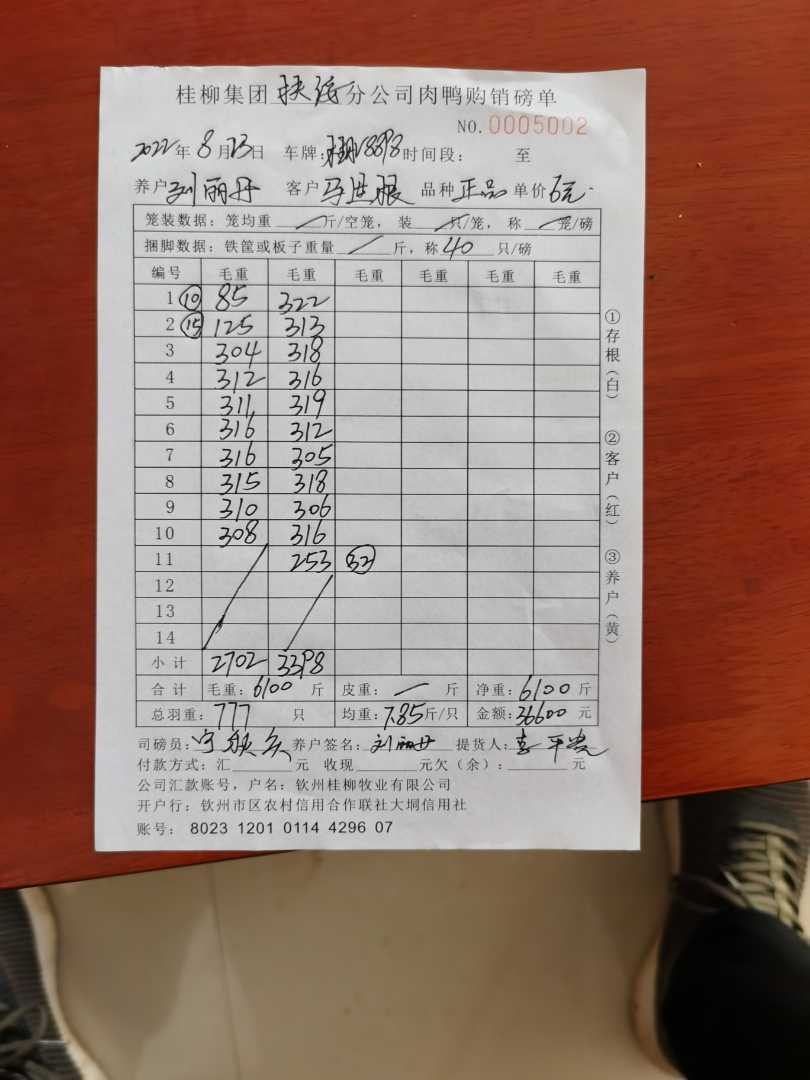 桂柳集团扶绥分公司肉鸭购销磅单
NO. 0005002
2022年8月23日 车牌: 时间段: 至
养户 刘丽丹 客户 马进根 品种 正品 单价 6元.
笼装数据: 笼均重 / 斤/空笼, 装 / 只/笼, 称 / 笼/磅
捆脚数据: 铁筐或板子重量 / 斤, 称 40 只/磅
编号 毛重 毛重 毛重 毛重 毛重 毛重
1 ⑩ 85 322
2 ⑮ 125 313
3 304 318
4 312 316
5 311 319
6 316 312
7 316 305
8 315 318
9 310 306
10 308 316
11 253 ㉜
12
13
14
小计 2702 3398
合计 毛重: 6100 斤 皮重: — 斤 净重: 6100 斤
总羽重: 777 只 均重: 7.85斤/只 金额: 36600 元
司磅员: 养户签名: 刘丽丹 提货人:
付款方式: 汇 元 收现 元欠(余): 元
公司汇款账号, 户名: 钦州桂柳牧业有限公司
开户行: 钦州市区农村信用合作联社大垌信用社
账号: 8023 1201 0114 4296 07
①存根(白) ②客户(红) ③养户(黄)